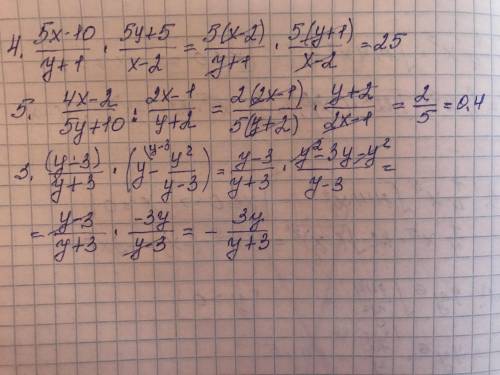 4. (5x-10)/(y+1) · (5y+5)/(x-2) = 5(x-2)/(y+1) · 5(y+1)/(x-2) = 25
5. (4x-2)/(5y+10) : (2x-1)/(y+2) = 2(2x-1)/5(y+2) · (y+2)/(2x-1) = 2/5 = 0.4
3. (y-3)/(y+3) · (y^(y-3) - y²/(y-3)) = (y-3)/(y+3) · (y²-3y-y²)/(y-3) =
= (y-3)/(y+3) · (-3y)/(y-3) = - 3y/(y+3)